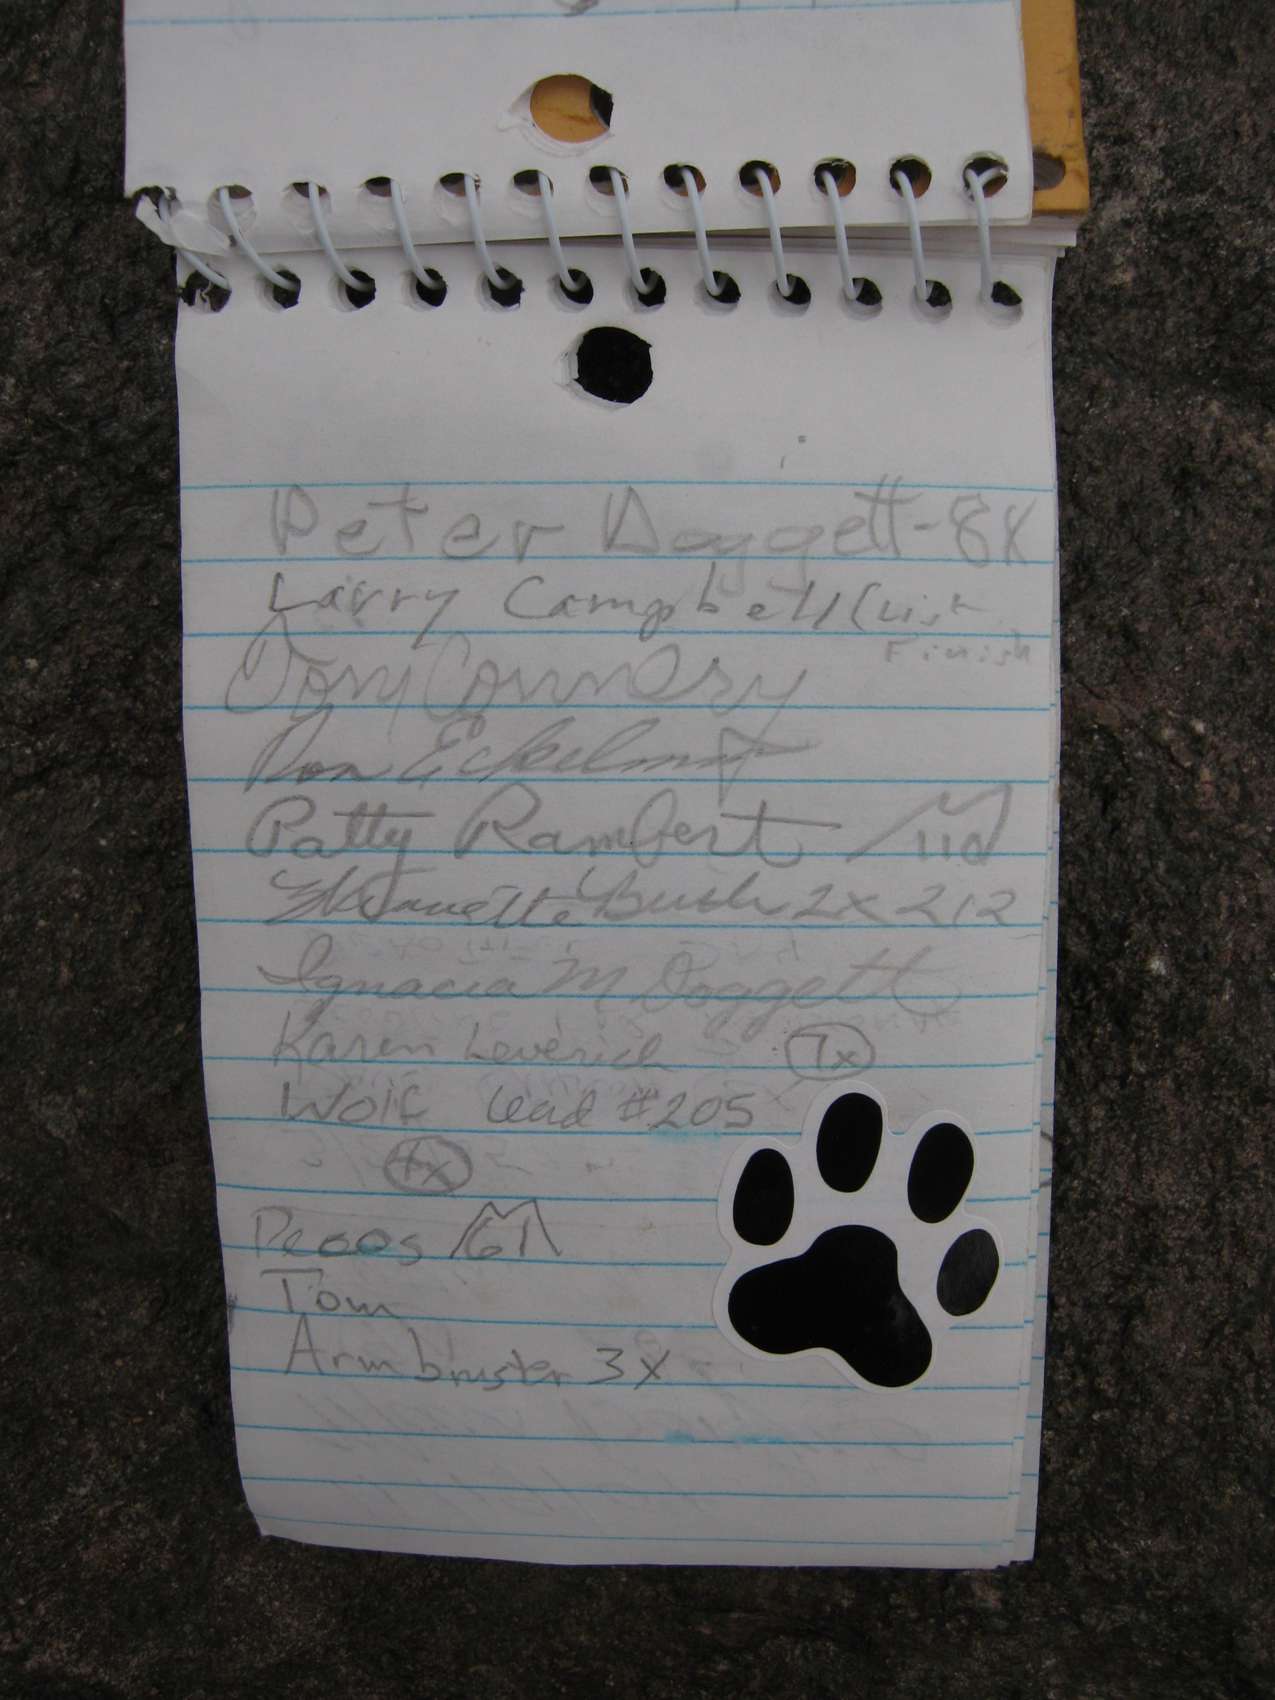 Peter Doggett - 8X
Larry Campbell (List
Finish
Tony Connery
Ron
Patty Rambert 110
Bush 2x 212
Ignacia M Doggett
Karen Leverich 7x
Wolf Lead #205
4x
Pecos 61
Tom
Armbruster 3X